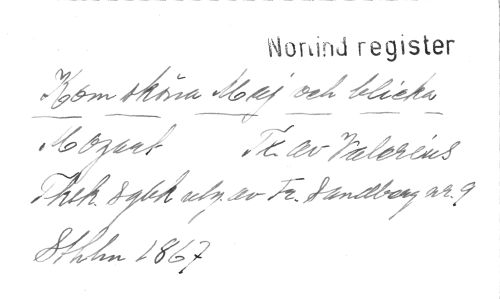 Norlind register
Kom sköna Maj och blicka
Mozart Tx. av Valerius
utg. av Fr. Sandberg nr. 9
Sthlm 1867